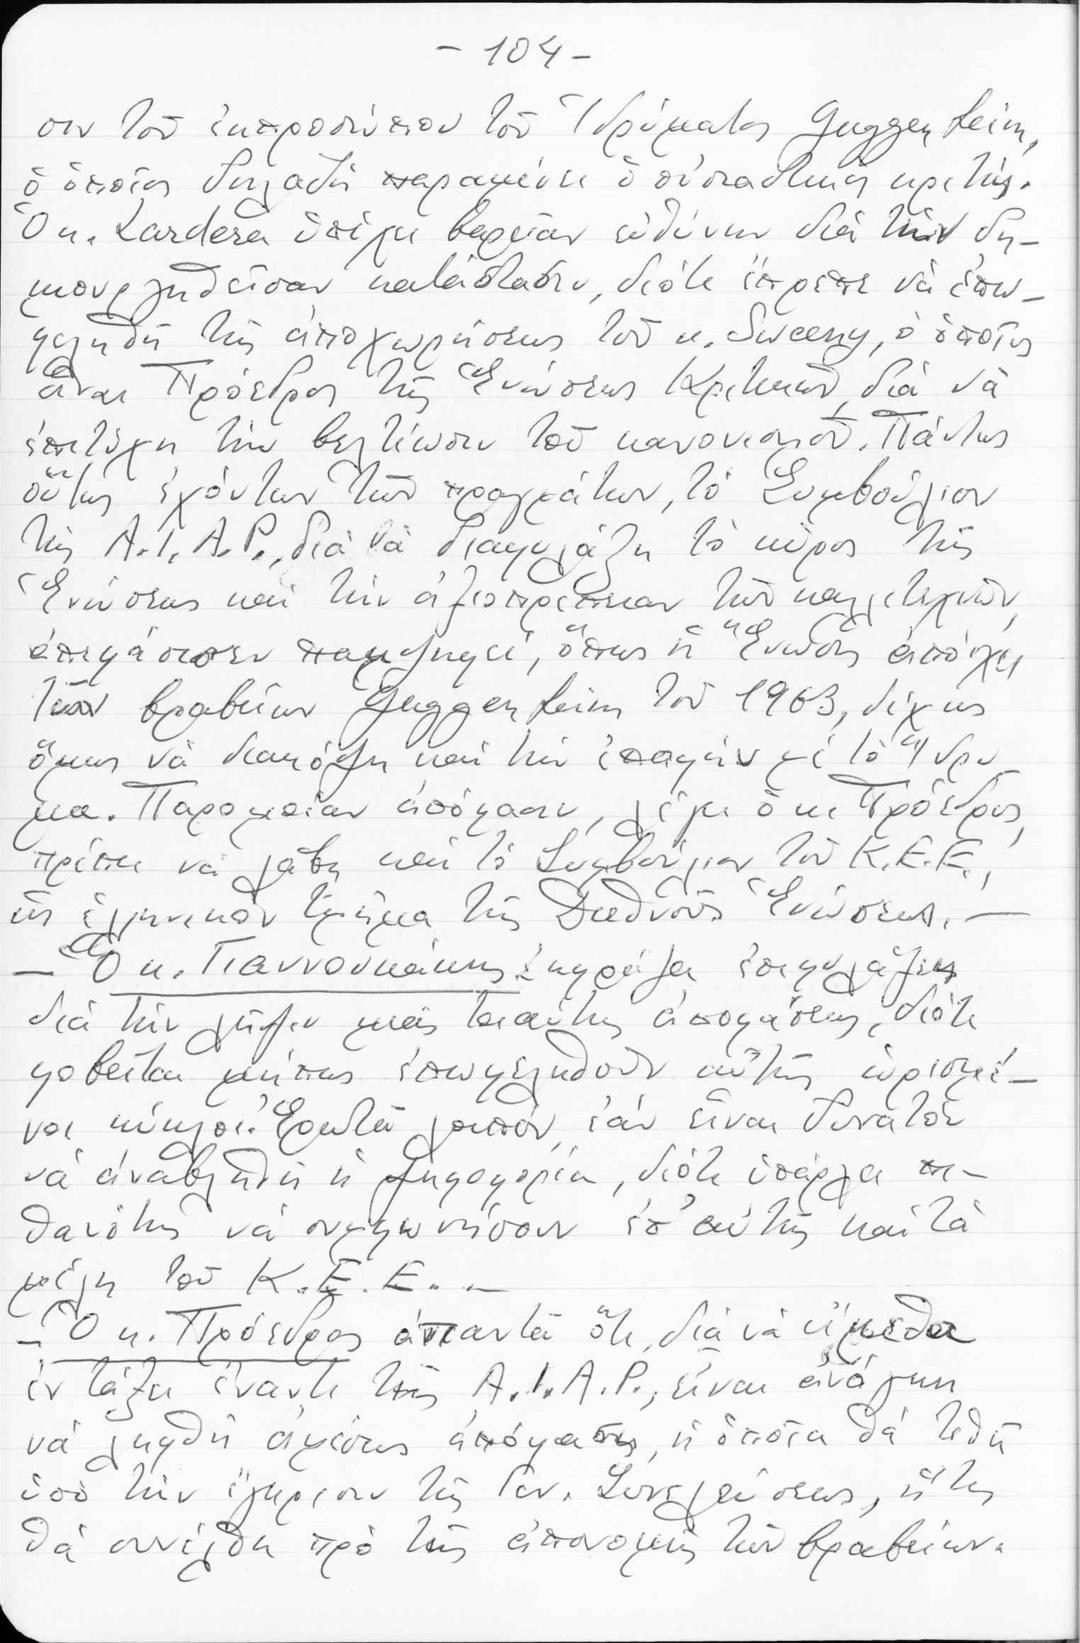 - 104 -
σιν τοῦ ἐκπροσώπου τοῦ Ἱδρύματος Guggenheim,
ὁ ὁποῖος δηλαδή παραμένει ὁ οὐσιαστικός κριτής.
Ὁ κ. Lardera ὑπέχει βαρεῖαν εὐθύνην διά τήν δη-
μιουργηθεῖσαν κατάστασιν, διότι ἔπρεπε νά ἐπω-
φεληθῇ τῆς ἀποχωρήσεως τοῦ κ. Sweeny, ὁ ὁποῖος
εἶναι Πρόεδρος τῆς Ἑνώσεως Κριτικῶν, διά νά
ἐπιτύχῃ τήν βελτίωσιν τοῦ κανονισμοῦ. Πάντως
οὕτως ἐχόντων τῶν πραγμάτων, τό Συμβούλιον
τῆς A.I.A.P., διά νά διαφυλάξῃ τό κῦρος τῆς
Ἑνώσεως καί τήν ἀξιοπρέπειαν τῶν καλλιτεχνῶν,
ἀπεφάσισεν παμψηφεί, ὅπως ἡ Ἕνωσις ἀπόσχῃ
τῶν βραβείων Guggenheim τοῦ 1963, δίχως
ὅμως νά διακόψῃ καί τήν ἐπαφήν μέ τό Ἵδρυ
μα. Παρομοίαν ἀπόφασιν, λέγει ὁ κ. Πρόεδρος,
πρέπει νά λάβῃ καί τό Συμβούλιον τοῦ Κ.Ε.Ε.,
ὡς ἑλληνικόν τμῆμα τῆς Διεθνοῦς Ἑνώσεως. —
— Ὁ κ. Γιαννουκάκης ἐκφράζει ἐπιφυλάξεις
διά τήν λῆψιν μιᾶς τοιαύτης ἀποφάσεως, διότι
φοβεῖται μήπως ἐπωφεληθοῦν αὐτῆς ὡρισμέ-
νοι κύκλοι. Ἐρωτᾶ λοιπόν, ἐάν εἶναι δυνατόν
νά ἀναβληθῇ ἡ ψηφοφορία, διότι ὑπάρχει πι-
θανότης νά συμφωνήσουν ἐπ' αὐτῆς καί τά
μέλη τοῦ Κ.Ε.Ε. . -
- Ὁ κ. Πρόεδρος ἀπαντᾶ ὅτι, διά νά εἴμεθα
ἐν τάξει ἔναντι τῆς A.I.A.P., εἶναι ἀνάγκη
νά ληφθῇ ἀμέσως ἀπόφασις, ἡ ὁποία θά τεθῇ
ὑπό τήν ἔγκρισιν τῆς Γεν. Συνελεύσεως, ἥτις
θά συνέλθῃ πρό τῆς ἀπονομῆς τῶν βραβείων.